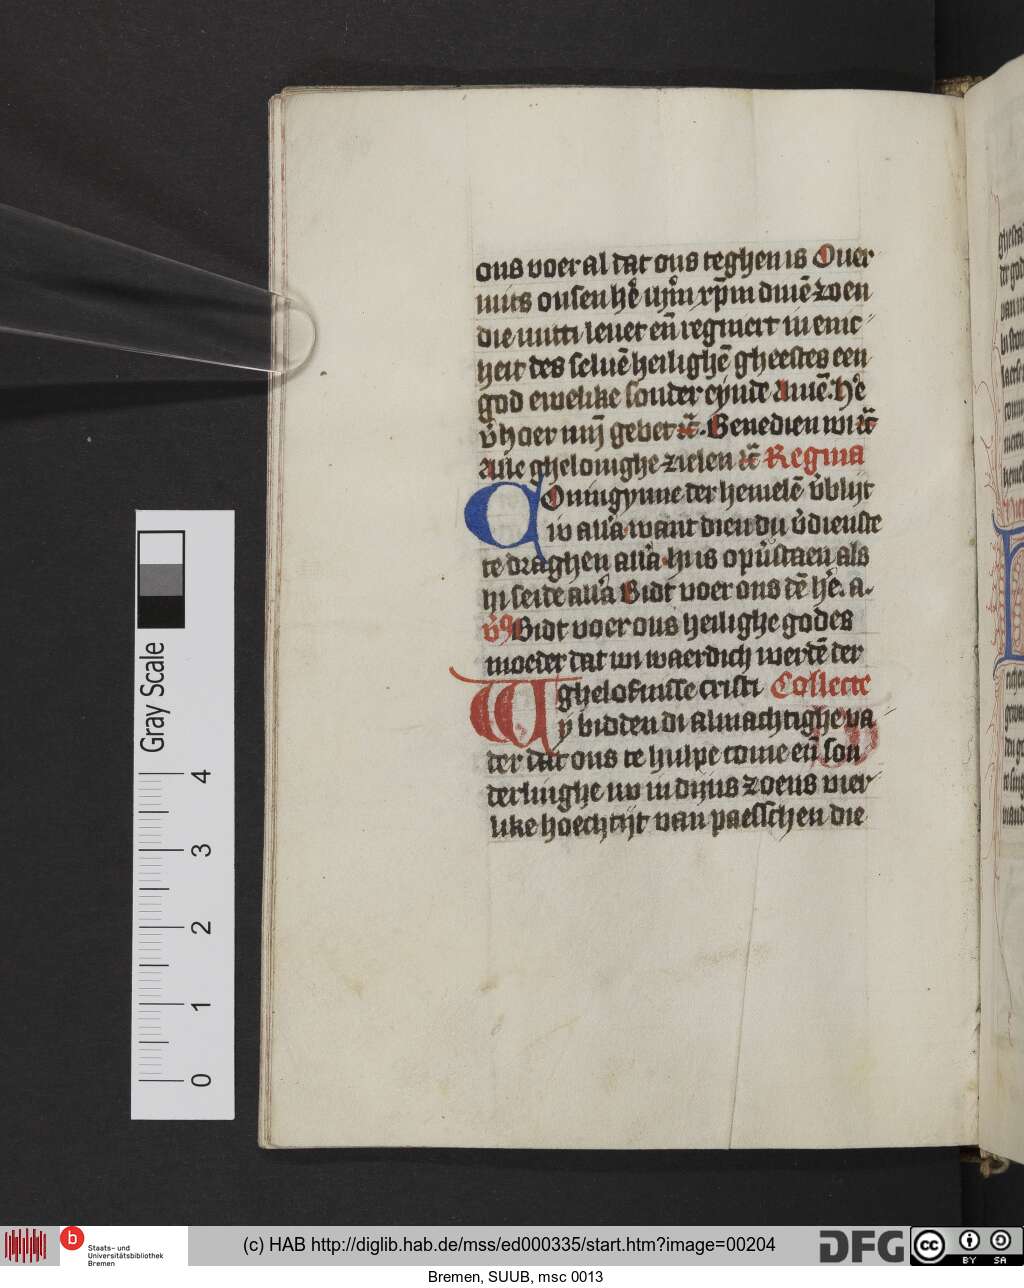 ons voer al dat ons teghen is Ouer
mits onsen hē ihm xp̄m dinē zoen
die mitti leuet en̄ regniert in enic
heit des seluē heilighē gheestes een
god ewelike sonder eynde Amē. Hē
v̄hoer mijn gebet etc̄. Benedien wi etc̄
Alle ghelouighe zielen etc̄ Regina
Coningynne der hemelē v̄blijt
iv all̄a want dien du v̄dienste
te draghen all̄a. hi is op v̄staen als
hi seide all̄a Bidt voer ons dē hē. a.
v̄s Bidt voer ons heilighe godes
moeder dat wi waerdich werdē der
ghelofnisse cristi Collecte
Wy bidden di almachtighe va
der dat ons te hulpe come en̄ son
derlinghe nv in dijns zoens vier
like hoechtijt van paesschen die
Gray Scale
4
3
2
1
0
b Staats- und
Universitätsbibliothek
Bremen
(c) HAB http://diglib.hab.de/mss/ed000335/start.htm?image=00204
DFG
cc BY SA
Bremen, SUUB, msc 0013